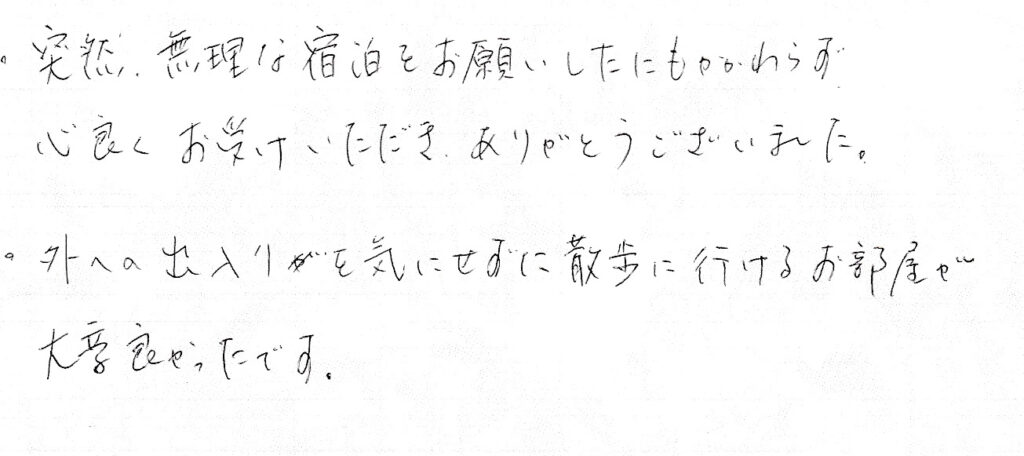 ・突然、無理な宿泊をお願いしたにもかかわらず
心良くお受けいただき、ありがとうございました。
・外への出入りを気にせずに散歩に行けるお部屋が
大変良かったです。